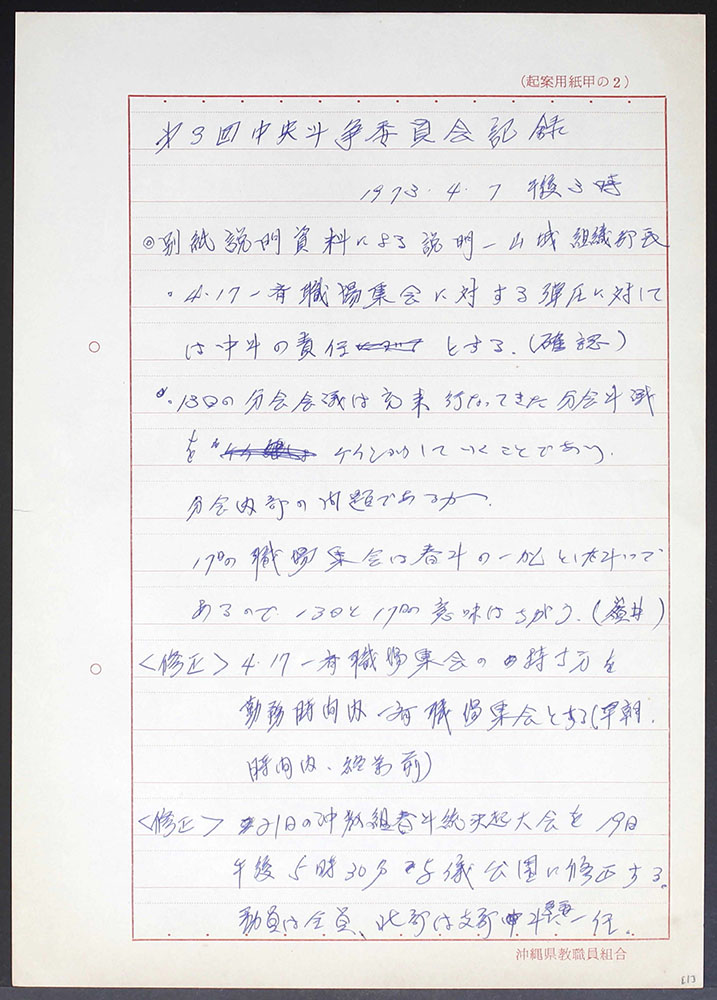 (起案用紙甲の2)
第3回中央斗争委員会記録
1973.4.7 午後3時
◎別紙説明資料による説明－山城組織部長
・4.17一斉職場集会に対する弾圧に対して
は中斗の責任とする。(確認)
・13日の分会会議は従来行なってきた分会斗争
を していくことであり、
分会内部の問題であるが、
17日の職場集会は春斗の一環とした斗いで
あるので、13日と17日の意味はちがう。( )
<修正> 4.17一斉職場集会の持ち方を
勤務時間内一斉職場集会とする(早朝、
時間内、 前)
<修正> 21日の沖教組春斗総決起大会を19日
午後5時30分与儀公園に修正する。
動員は全員、北部は支部 斗委一任。
沖縄県教職員組合
E13